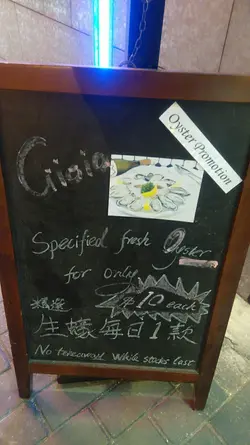 Oyster Promotion
Gioia
Specified fresh Oyster
for only
$10 each
精選
生蠔每日1款
No takeaway While stocks last